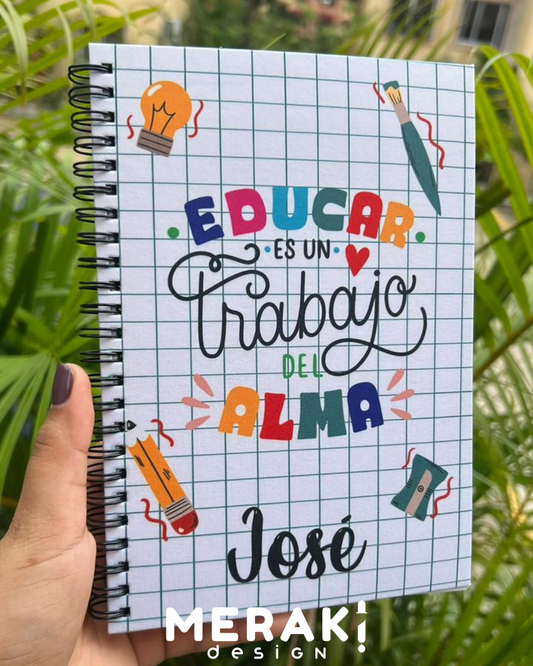 EDUCAR
ES UN
Trabajo
DEL
ALMA
José
MERAK!
design